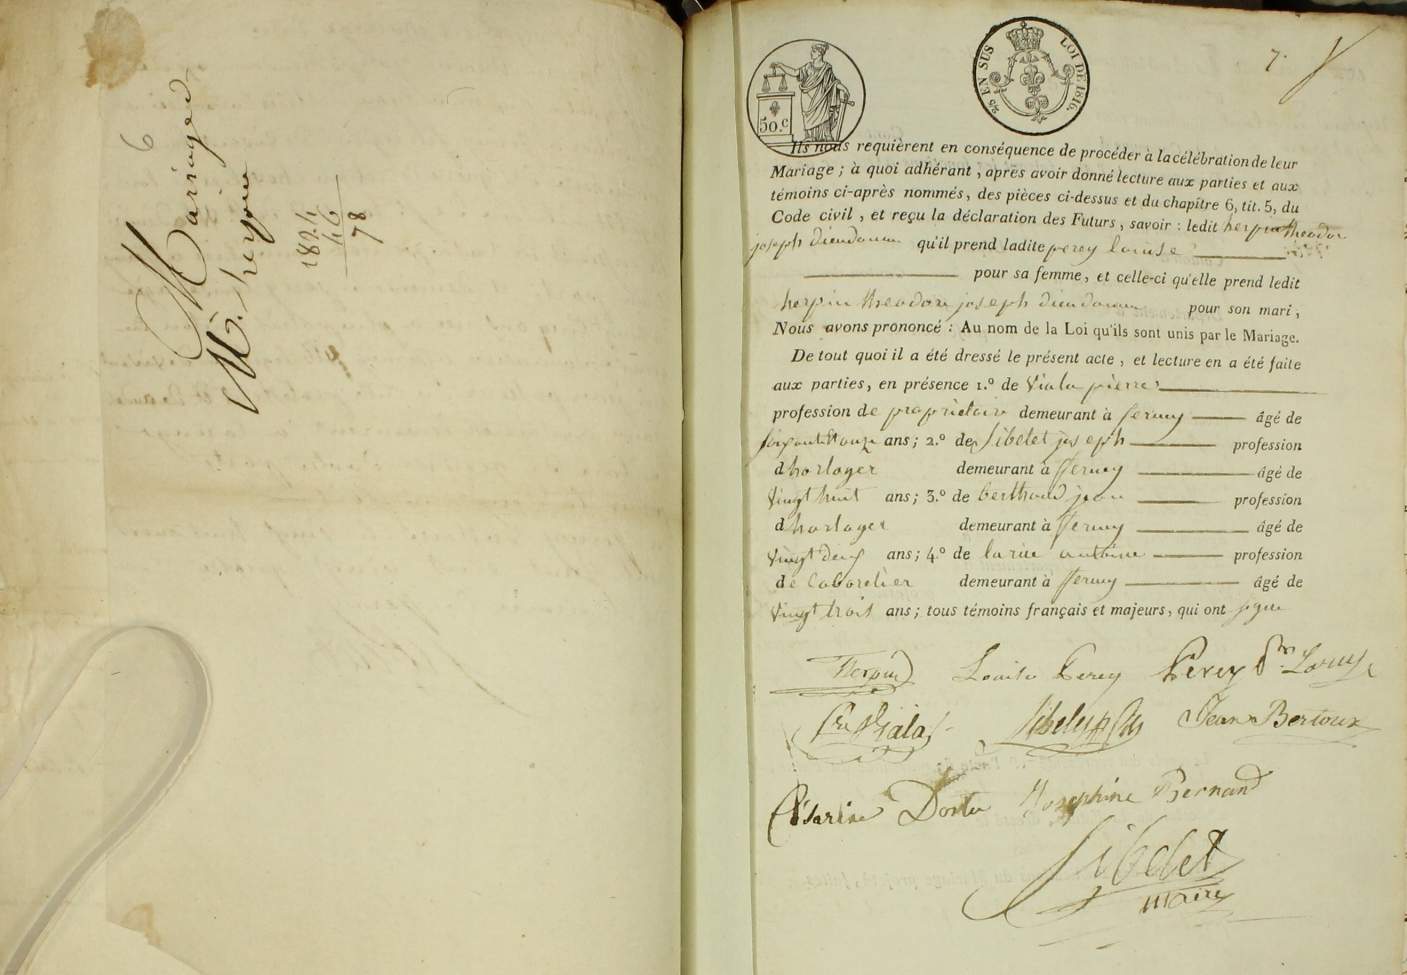 6
Mariage d
Mr. herpin
1824
46
78
50.c
25 EN SUS LOI DE 1816.
7.
Ils nous requièrent en conséquence de procéder à la célébration de leur
Mariage ; à quoi adhérant , après avoir donné lecture aux parties et aux
témoins ci-après nommés, des pièces ci-dessus et du chapître 6, tit. 5, du
Code civil , et reçu la déclaration des Futurs , savoir : ledit herpin theodor
joseph dieudonne qu'il prend ladite perey louise
pour sa femme, et celle-ci qu'elle prend ledit
herpin theodore joseph dieudonne pour son mari ,
Nous avons prononcé : Au nom de la Loi qu'ils sont unis par le Mariage.
De tout quoi il a été dressé le présent acte , et lecture en a été faite
aux parties, en présence 1.º de Viala pierre
profession de propriétaire demeurant à ferney âgé de
ans ; 2.º de Sibelet joseph profession
d horloger demeurant à fferney âgé de
Vingt huit ans ; 3.º de berthoud jean profession
d horloger demeurant à fferney âgé de
Vingt deux ans ; 4.º de larue antoine profession
de demeurant à fferney âgé de
Vingt trois ans ; tous témoins français et majeurs, qui ont signé
Herpin Louise Perey Perey
Viala Sibelet Jean Bertoux
Césarine Dortu Josephine Bernand
Sibelet
maire